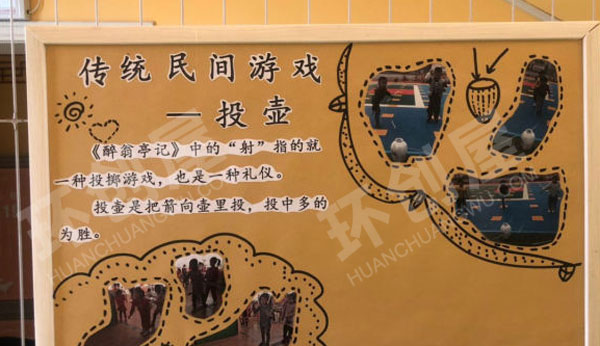 传统民间游戏
—投壶
《醉翁亭记》中的“射”指的就
一种投掷游戏，也是一种礼仪。
投壶是把箭向壶里投，投中多的
为胜。
环创屋
HUANCHUANGWU.COM
环创屋
HUANCHUANGWU.COM